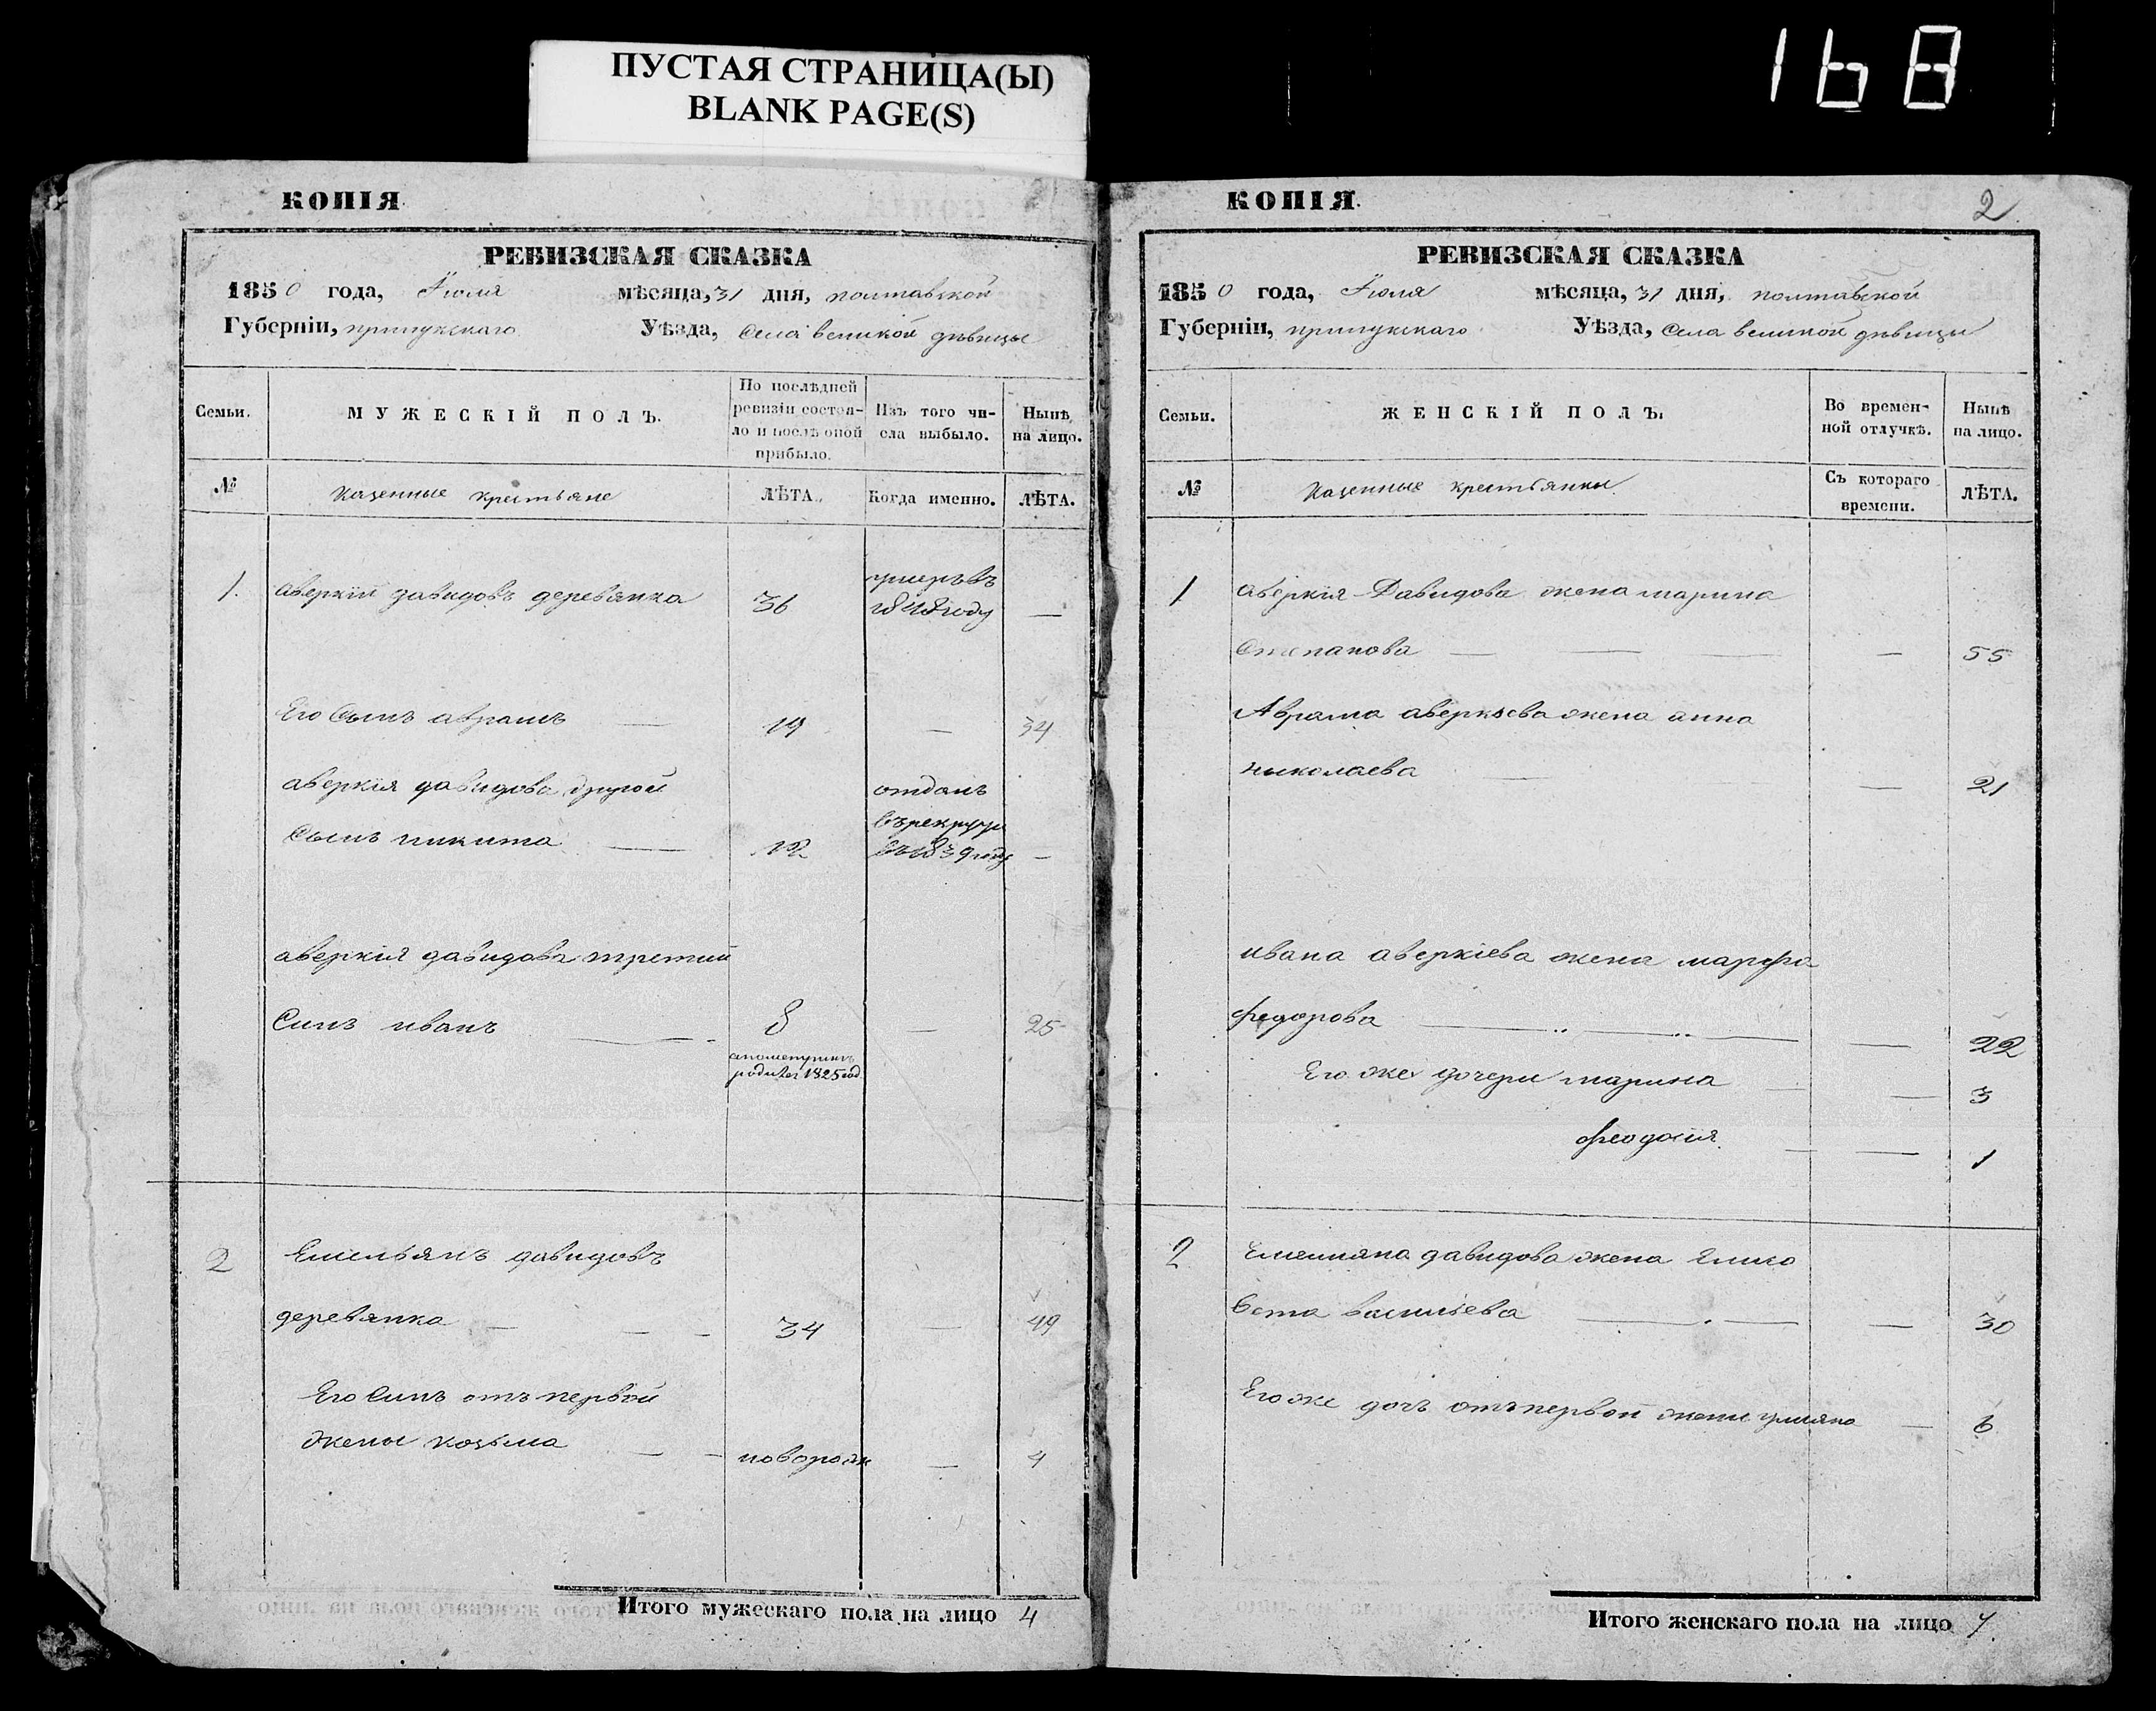 ПУСТАЯ СТРАНИЦА(Ы)
BLANK PAGE(S)
168
КОПІЯ.
РЕВИЗСКАЯ СКАЗКА
1850 года, Іюля мѣсяца, 31 дня, полтавской
Губерніи, прилукскаго Уѣзда, села великой дѣвицы
Семьи.
МУЖЕСКІЙ ПОЛЪ.
По послѣдней ревизіи состоя-ло и послѣ оной прибыло.
Изъ того чи-сла выбыло.
Нынѣ на лицо.
№
Казенные крестьяне
ЛѢТА.
Когда именно.
ЛѢТА.
1. аверкій давидовъ деревянка 36 умеръ въ 1848 году —
Его Сынъ аврамъ — 19 — 34
аверкія давидова другой
Сынъ никита — 12 отданъ въ рекруты въ 1839 году —
аверкія давидовъ третий
Синъ иванъ — 8 — 25
родился 1825 год
2 Емельянъ давидовъ
деревянка — 34 — 49
Его Синъ отъ первой
жены козьма — новорож — 4
Итого мужескаго пола на лицо 4
КОПІЯ.
2
РЕВИЗСКАЯ СКАЗКА
1850 года, Іюля мѣсяца, 31 дня, полтавской
Губерніи, прилукскаго Уѣзда, села великой дѣвицы
Семьи.
ЖЕНСКІЙ ПОЛЪ.
Во времен-ной отлучкѣ.
Нынѣ на лицо.
№
Казенные крестьянки.
Съ котораго времени.
ЛѢТА.
1 аверкія Давидова жена марина
Степанова — — 55
Аврама аверкіева жена анна
николаева — — 21
ивана аверкіева жена марфа
федорова — — 22
Его же дочери марина — — 3
феодосія — — 1
2 Емелияна давидова жена Елисо
вета васильева — — 30
Его же дочь отъ первой жени улияна — 6
Итого женскаго пола на лицо 7.